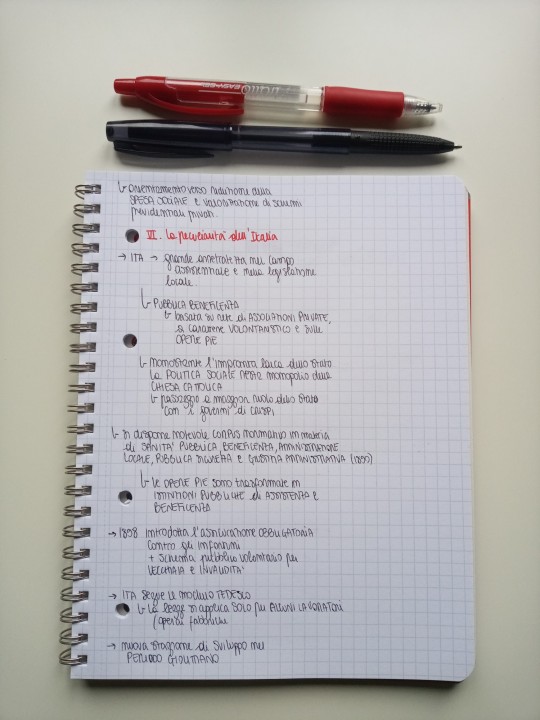 EASY-GEL
↳ orientamento verso riduzione della
SPESA SOCIALE e valorizzazione di schemi
previdenziali privati.
VI. La peculiarità dell'Italia
→ ITA → grande arretratezza nel campo
assistenziale e nella legislazione
locale.
↳ PUBBLICA BENEFICENZA
↳ basata su rete di ASSOCIAZIONI PRIVATE,
a carattere VOLONTARISTICO e sulle
OPERE PIE
↳ nonostante l'impronta laica dello Stato
la POLITICA SOCIALE resta monopolio della
CHIESA CATTOLICA
↳ passaggio a maggior ruolo dello Stato
con i governi di CRISPI
↳ si dispone notevole CORPUS normativo in materia
di SANITA' PUBBLICA, BENEFICENZA, AMMINISTRAZIONE
LOCALE, PUBBLICA SICUREZZA e GIUSTIZIA AMMINISTRATIVA
↳ le OPERE PIE sono trasformate in
ISTITUZIONI PUBBLICHE di ASSISTENZA E
BENEFICENZA
→ 1898 introdotta l'assicurazione OBBLIGATORIA
contro gli infortuni
+ schema pubblico volontario per
VECCHIAIA E INVALIDITA'
→ ITA segue il modello TEDESCO
↳ la legge si applica SOLO per ALCUNI LAVORATORI
(operai fabbriche
→ nuova stagione di sviluppo nel
PERIODO GIOLITTIANO